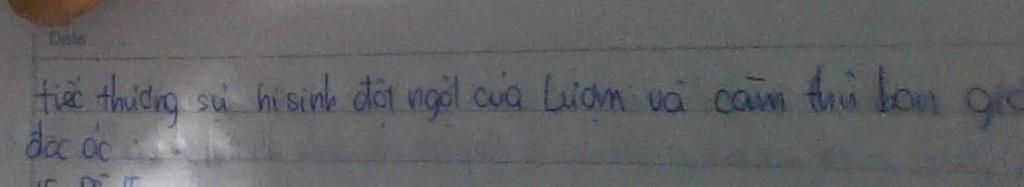 Date
tiếc thương sự hi sinh đột ngột của Lượm và căm thù bọn
độc ác